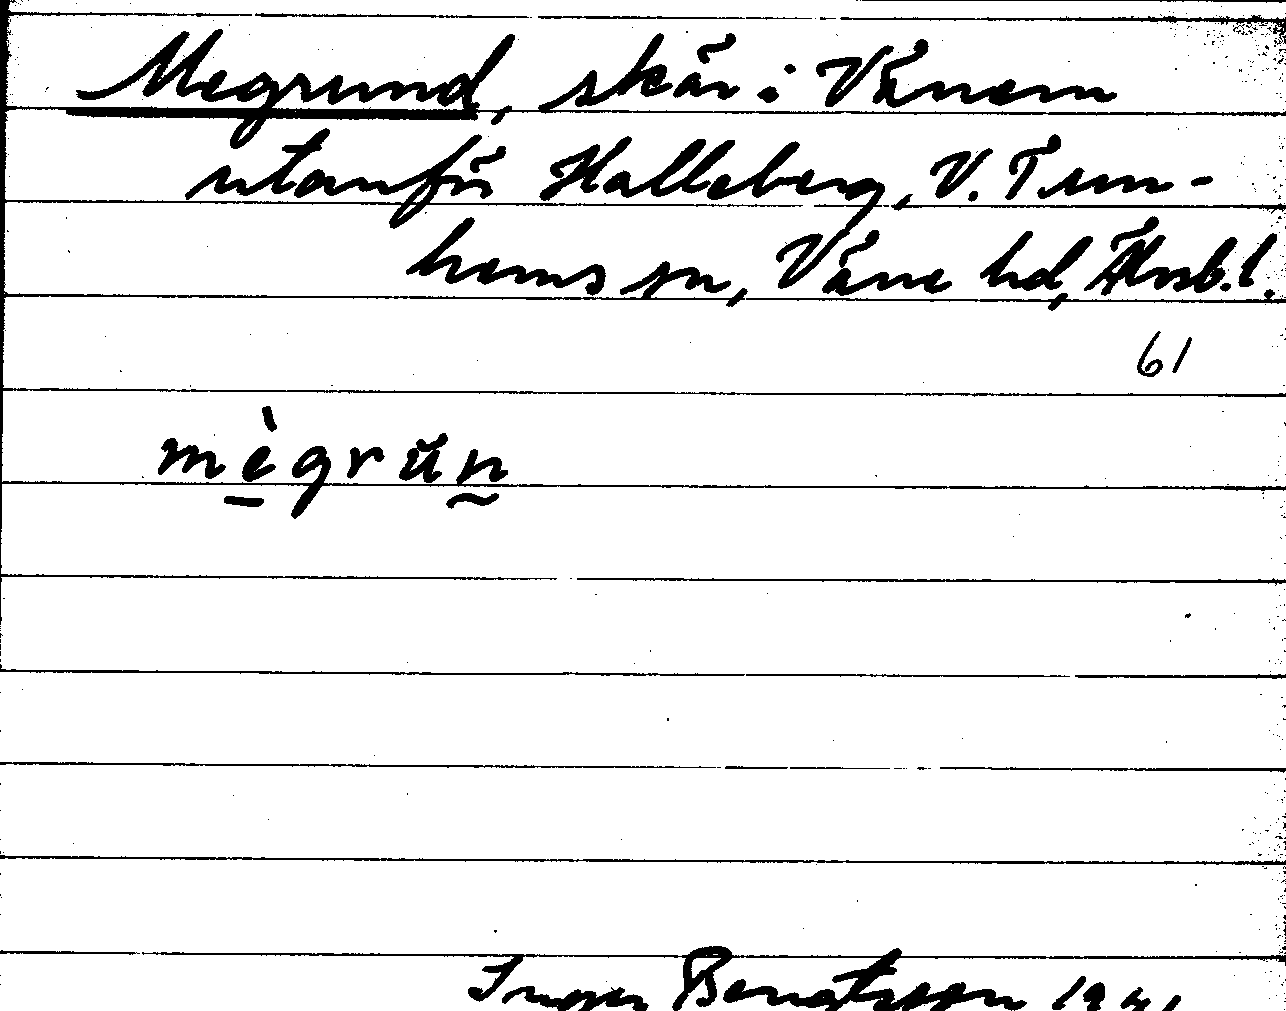 Megrund, skär i Vänern
utanför Halleberg, V. Tun-
hems sn, Väne hd, Älvsb. l.
61
mègrŭn̰
Inger Bengtsson